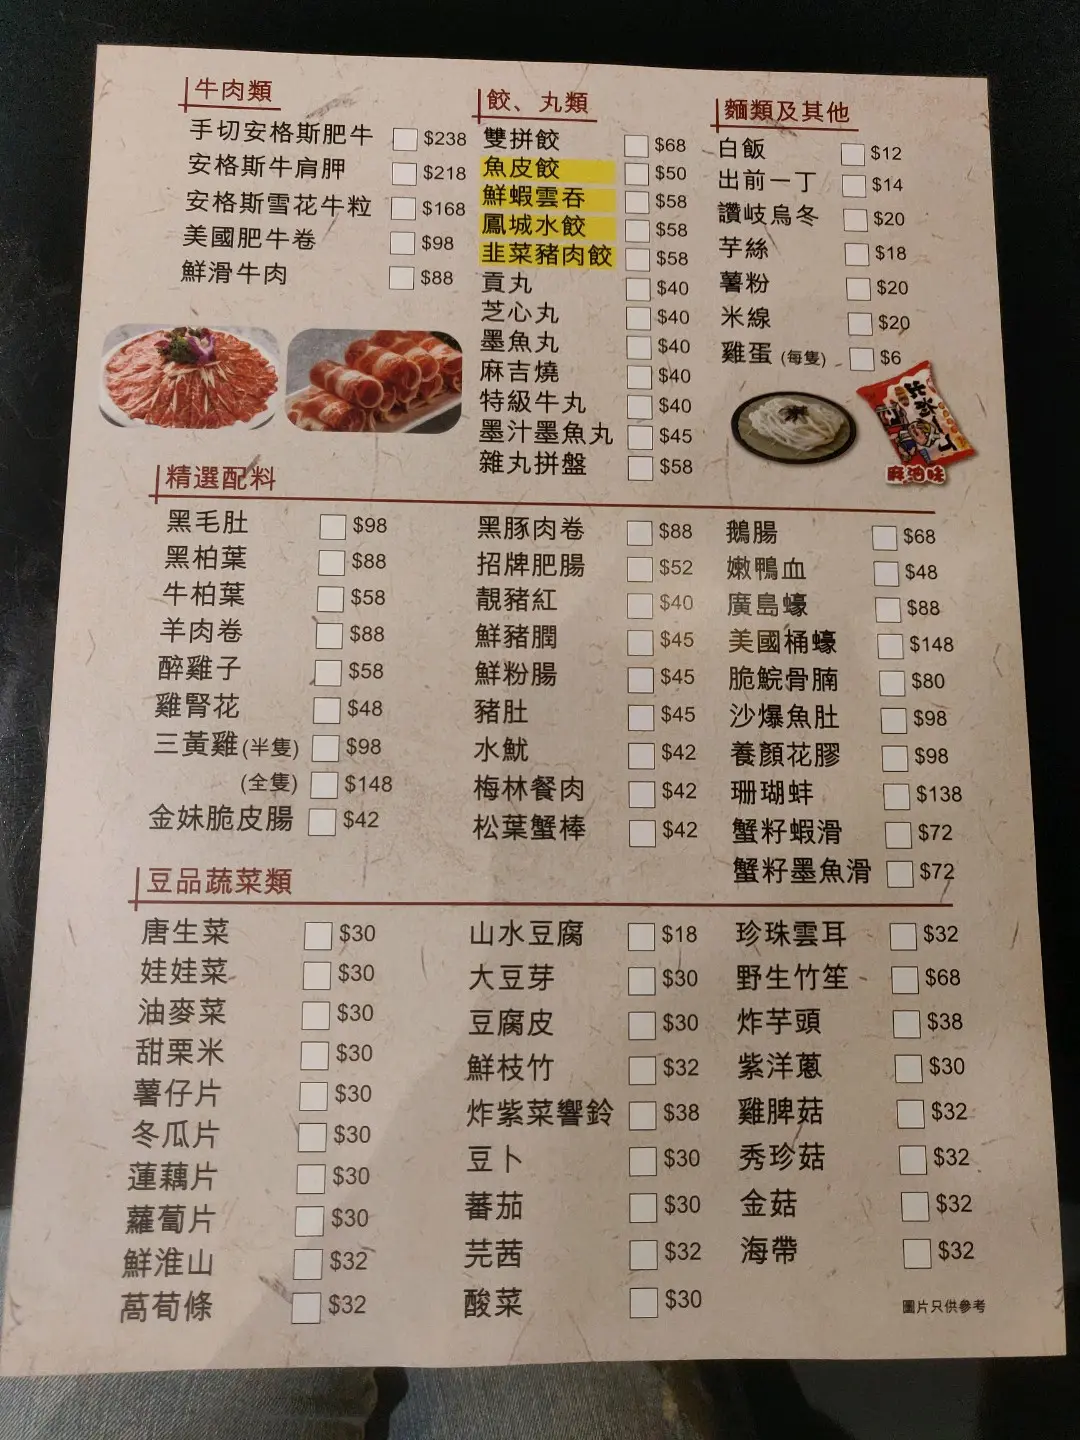 牛肉類
手切安格斯肥牛 $238
安格斯牛肩胛 $218
安格斯雪花牛粒 $168
美國肥牛卷 $98
鮮滑牛肉 $88
餃、丸類
雙拼餃 $68
魚皮餃 $50
鮮蝦雲吞 $58
鳳城水餃 $58
韭菜豬肉餃 $58
貢丸 $40
芝心丸 $40
墨魚丸 $40
麻吉燒 $40
特級牛丸 $40
墨汁墨魚丸 $45
雜丸拼盤 $58
麵類及其他
白飯 $12
出前一丁 $14
讚岐烏冬 $20
芋絲 $18
薯粉 $20
米線 $20
雞蛋 (每隻) $6
麻油味
精選配料
黑毛肚 $98
黑柏葉 $88
牛柏葉 $58
羊肉卷 $88
醉雞子 $58
雞腎花 $48
三黃雞 (半隻) $98
(全隻) $148
金妹脆皮腸 $42
黑豚肉卷 $88
招牌肥腸 $52
靚豬紅 $40
鮮豬膶 $45
鮮粉腸 $45
豬肚 $45
水魷 $42
梅林餐肉 $42
松葉蟹棒 $42
鵝腸 $68
嫩鴨血 $48
廣島蠔 $88
美國桶蠔 $148
脆鯇骨腩 $80
沙爆魚肚 $98
養顏花膠 $98
珊瑚蚌 $138
蟹籽蝦滑 $72
蟹籽墨魚滑 $72
豆品蔬菜類
唐生菜 $30
娃娃菜 $30
油麥菜 $30
甜栗米 $30
薯仔片 $30
冬瓜片 $30
蓮藕片 $30
蘿蔔片 $30
鮮淮山 $32
萵荀條 $32
山水豆腐 $18
大豆芽 $30
豆腐皮 $30
鮮枝竹 $32
炸紫菜響鈴 $38
豆卜 $30
蕃茄 $30
芫茜 $32
酸菜 $30
珍珠雲耳 $32
野生竹笙 $68
炸芋頭 $38
紫洋蔥 $30
雞脾菇 $32
秀珍菇 $32
金菇 $32
海帶 $32
圖片只供參考